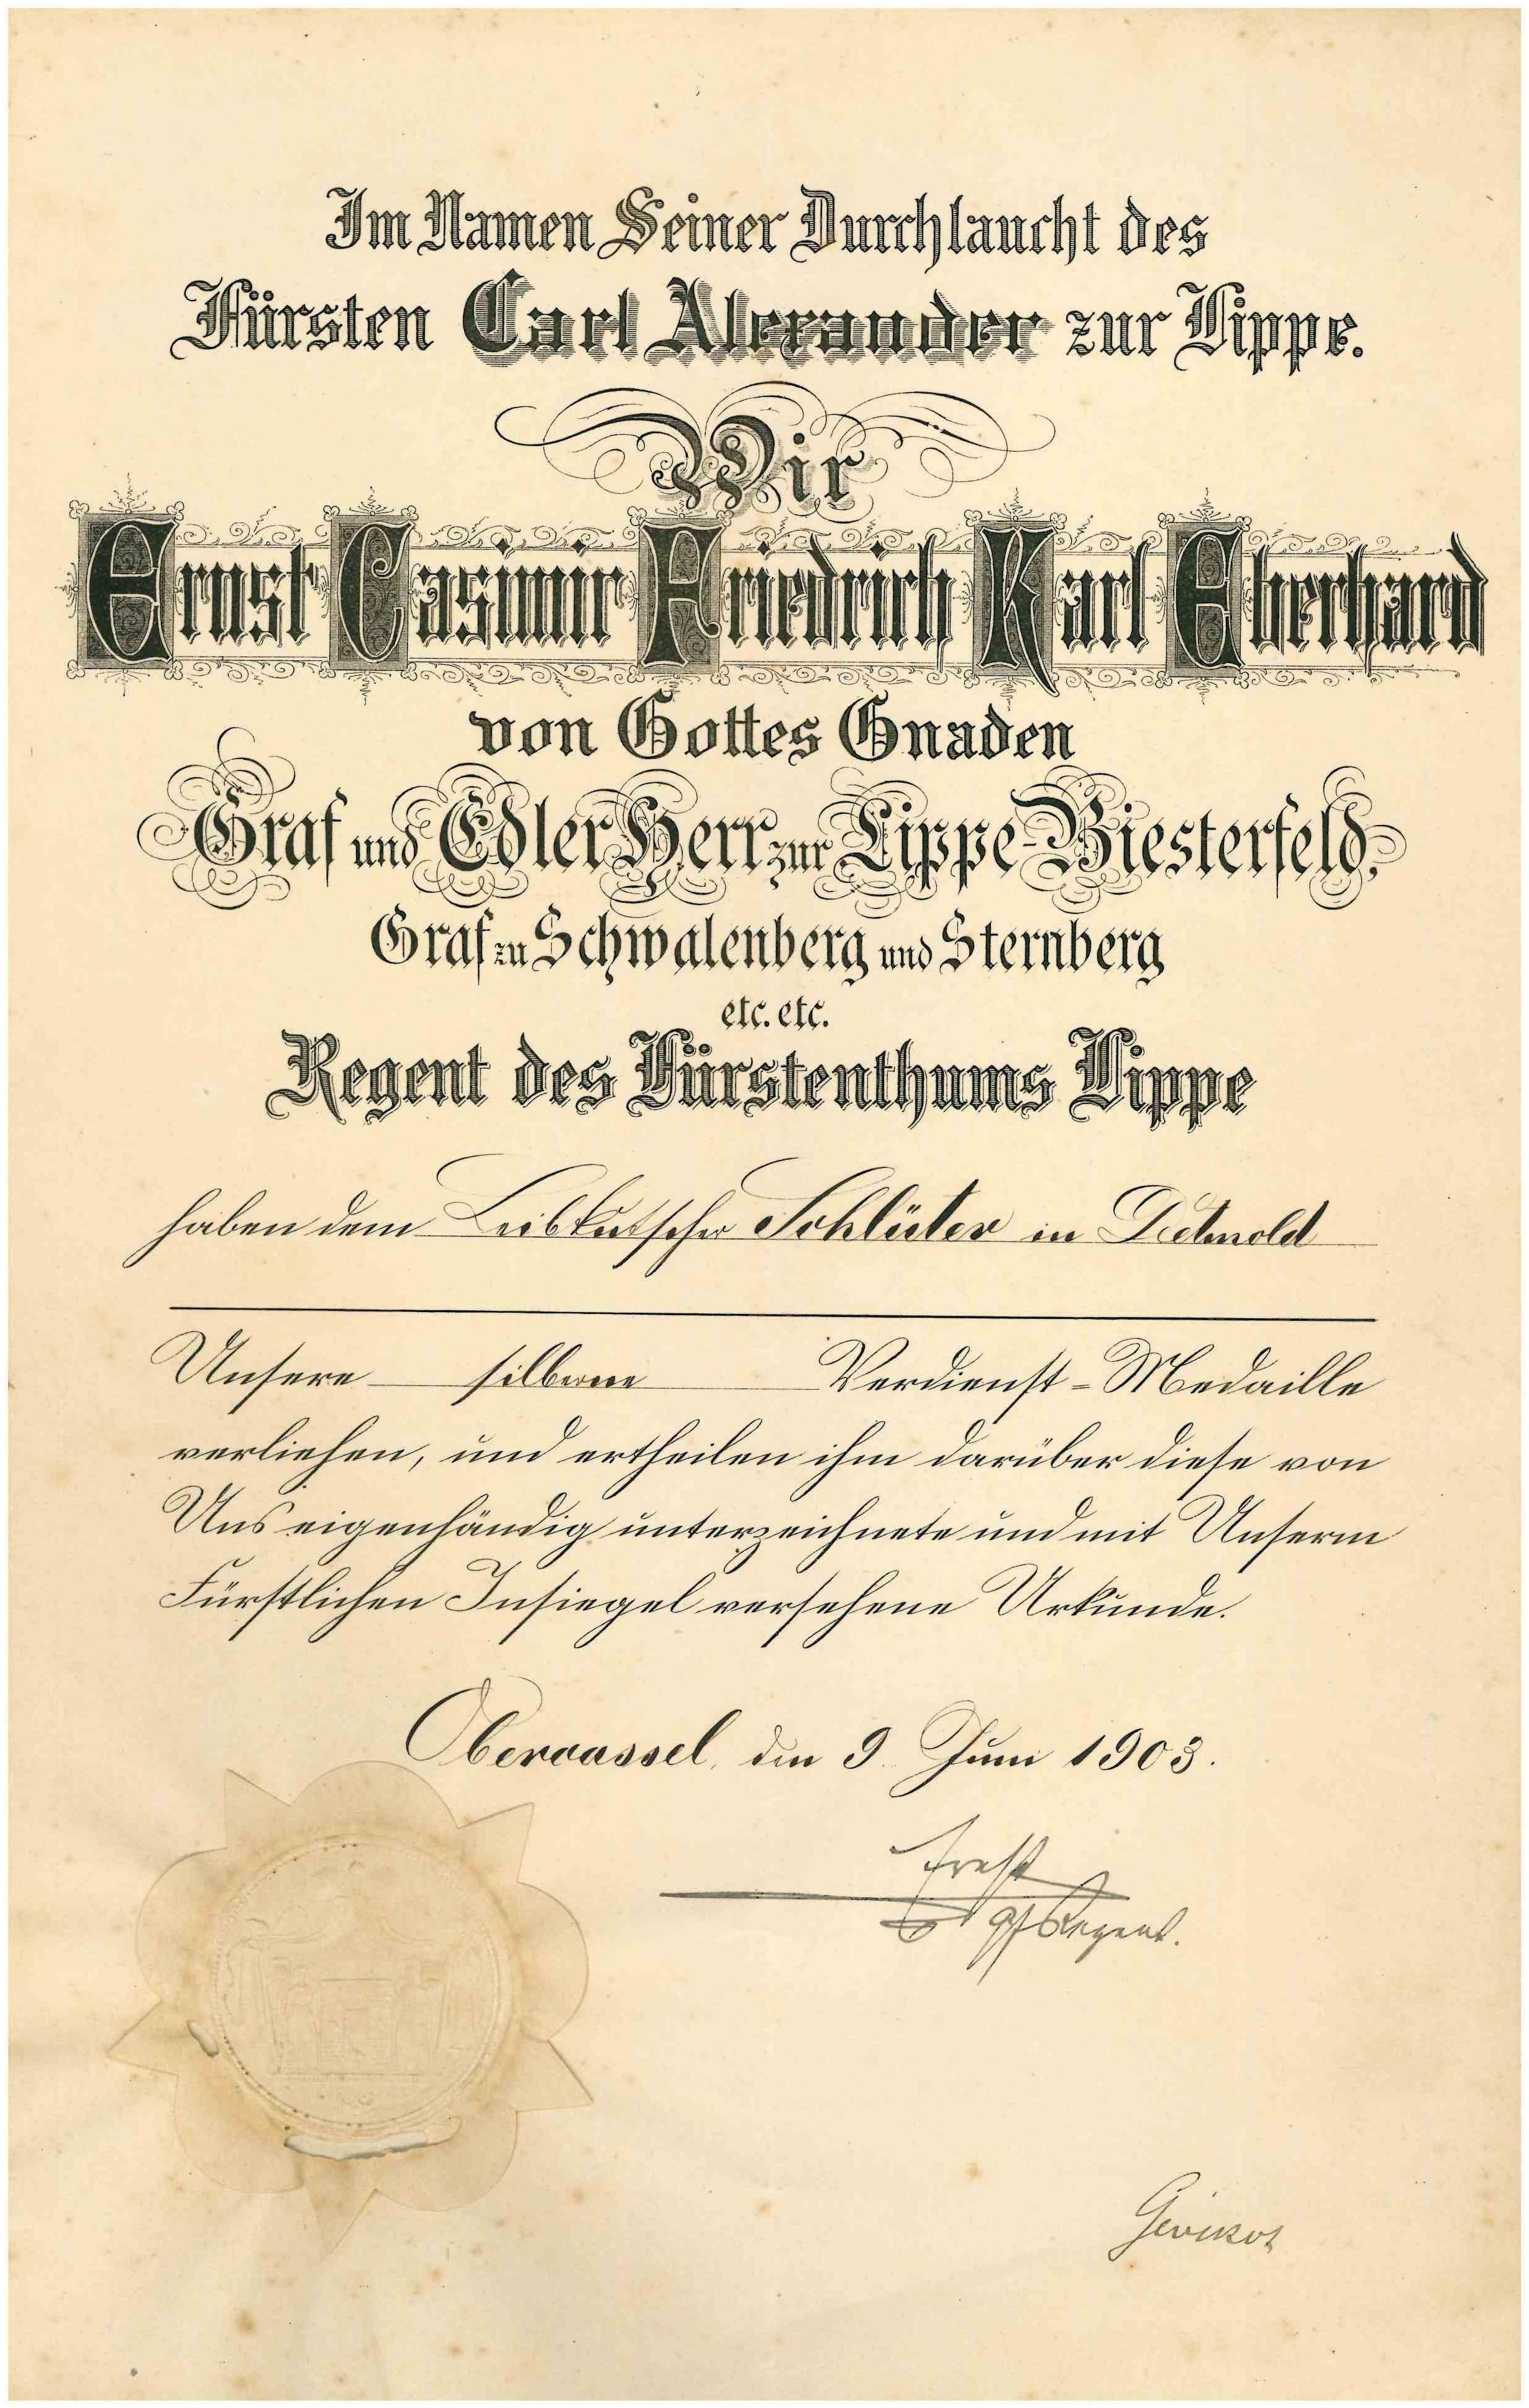 Im Namen Seiner Durchlaucht des
Fürsten Carl Alexander zur Lippe.
Wir
Ernst Casimir Friedrich Karl Eberhard
von Gottes Gnaden
Graf und Edler Herr zur Lippe-Biesterfeld,
Graf zu Schwalenberg und Sternberg
etc. etc.
Regent des Fürstenthums Lippe
haben dem Leibkutscher Schlüter in Detmold
Unsere silberne Verdienst-Medaille
verliehen, und ertheilen ihm darüber diese von
Uns eigenhändig unterzeichnete und mit Unserm
Fürstlichen Insiegel versehene Urkunde.
Obercassel, den 9. Juni 1903.
Ernst
Regent.